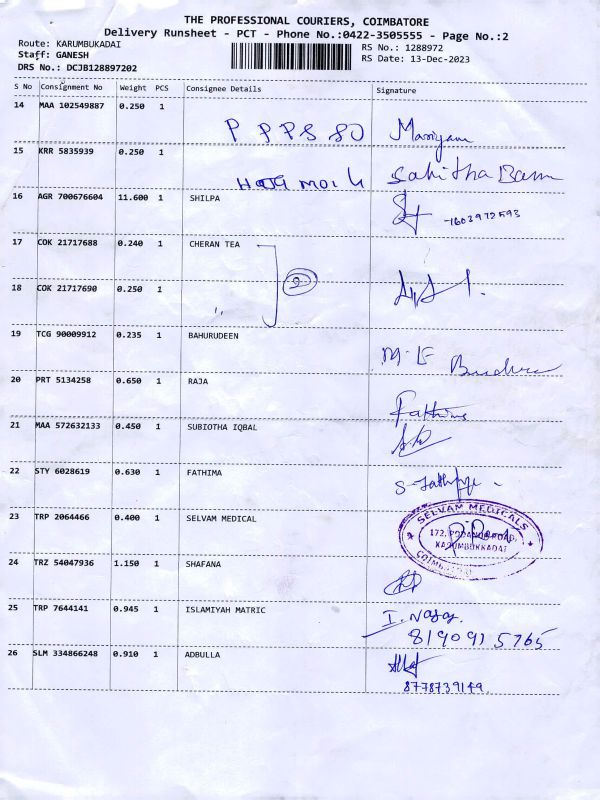 THE PROFESSIONAL COURIERS, COIMBATORE
Delivery Runsheet - PCT - Phone No.:0422-3505555 - Page No.:2
Route: KARUMBUKADAI
Staff: GANESH
DRS No.: DCJB128897202
RS No.: 1288972
RS Date: 13-Dec-2023
S No Consignment No Weight PCS Consignee Details Signature
14 MAA 102549887 0.250 1
P P P S SO Mariyam
15 KRR 5835939 0.250 1
Sahitha Banu
16 AGR 700676604 11.600 1 SHILPA
17 COK 21717688 0.240 1 CHERAN TEA
2
18 COK 21717690 0.250 1
19 TCG 90009912 0.235 1 BAHURUDEEN
20 PRT 5134258 0.650 1 RAJA
Fathima
21 MAA 572632133 0.450 1 SUBIOTHA IQBAL
22 STY 6028619 0.630 1 FATHIMA
23 TRP 2064466 0.400 1 SELVAM MEDICAL
SELVAM MEDICALS
172, PODANUR ROAD,
KARUMBUKKADAI
COIMBATORE
24 TRZ 54047936 1.150 1 SHAFANA
25 TRP 7644141 0.945 1 ISLAMIYAH MATRIC
8190915765
26 SLM 334866248 0.910 1 ADBULLA
8778739149